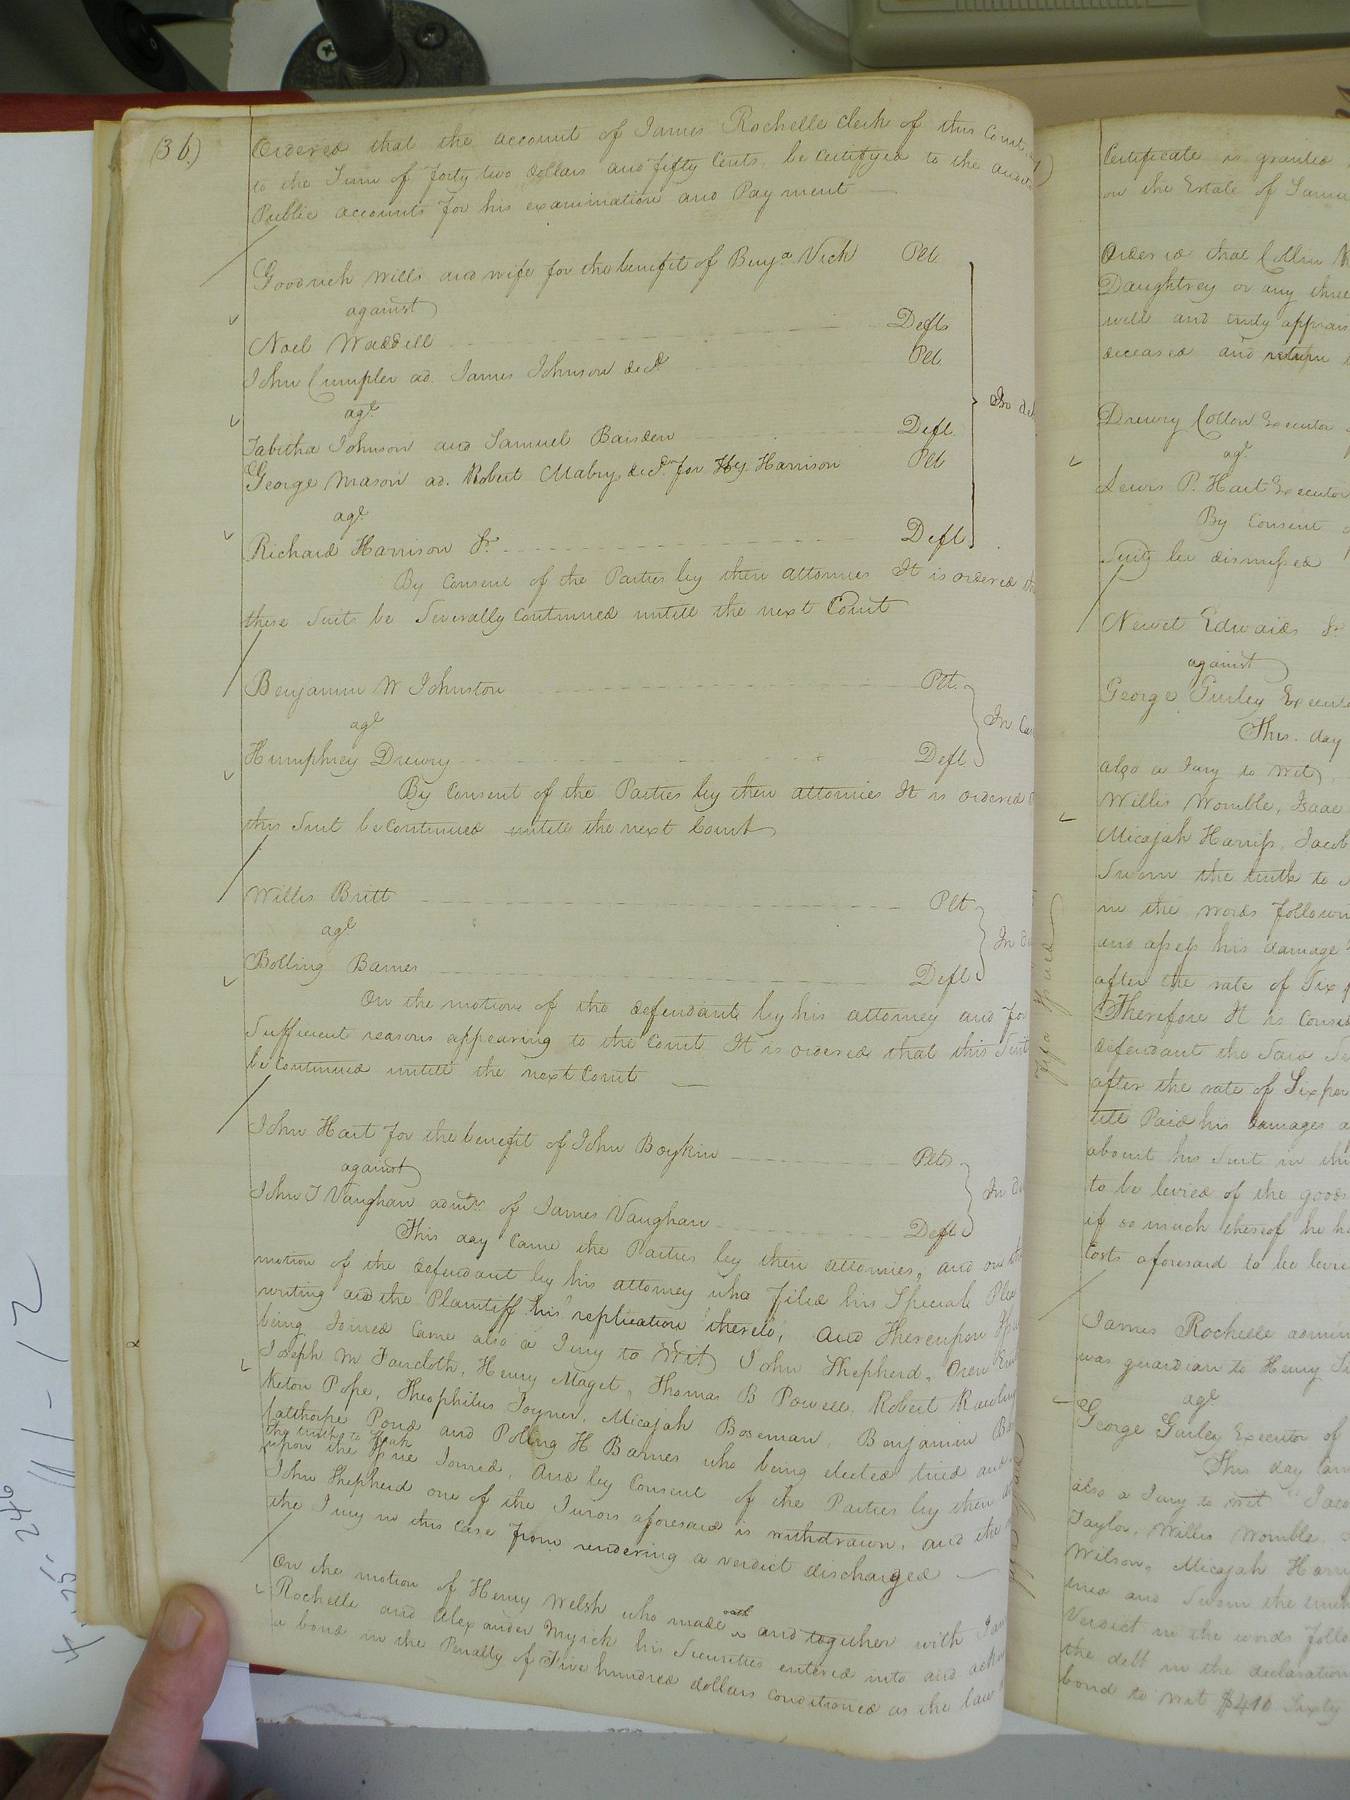 (36.)
Ordered that the account of James Rochelle Clerk of this Court
to the Sum of forty two dollars and fifty Cents, be Certifyed to the
Public accounts for his examination and Pay ment
Goodrich Wills and wife for the benefit of Benja. Vick Plt.
against
Noel Waddell Defts
John Crumpler ad. James Johnson decd. Plt
agt
Tabitha Johnson and Samuel Baisden Deft.
George Mason ad. Robert Mabry decd. for Hy. Harrison Plt
agt
Richard Harrison Sr. Deft.
By Consent of the Parties by their attornies It is ordered
these Suits be Severally Continued untill the next Court
Benjamin W Johnston Plt.
agt
Humphrey Drewry Deft
By Consent of the Parties by their attornies It is ordered
this Suit be Continued untill the next Court
Willis Britt Plt
agt
Bolling Barnes Deft
On the motion of the defendant by his attorney and for
Sufficient reasons appearing to the Court It is ordered that this Suit
be Continued untill the next Court
John Hart for the benefit of John Boykin Plt
against
John T Vaughan admr. of James Vaughan Deft
This day Came the Parties by their attornies, and on the
motion of the defendant by his attorney who filed his Special Plea
writing and the Plaintiff his replication thereto, and Thereupon
being Joined Came also a Jury to Wit, John Shepherd, Orren
Joseph W Faircloth, Henry Maget, Thomas B Powell, Robert
Keton Pope, Theophilus Joyner, Micajah Boseman, Benjamin
Calthorpe Pond and Poling H Barnes who being elected tried and
the truth to Speak
upon the Issue Joined, And by Consent of the Parties by their
John Shepherd one of the Jurors aforesaid is withdrawn, and the
the Jury in this Case from rendering a verdict discharged
On the motion of Henry Welsh who made oath and together with
Rochelle and Alexander Myrick his Securities entered into and
a bond in the Penalty of Five hundred dollars Conditioned as the law
Certificate is granted
on the Estate of
Ordered that Collin
Daughtrey or any three
well and truly
deceased and return
Drewry Cotton Executor
agt
Lewis P. Hart Executor
By Consent
Suit be dismissed
Newit Edwards Sr.
against
George Gurley
This day
also a Jury to Wit,
Willis Womble, Isaac
Micajah Harriss, Jacob
Sworn the truth to
in the words
and assess his damage
after the rate of Six
Therefore It is
defendant the Said
after the rate of Six
till Paid his damages
about his Suit in
to be levied of the goods
if so much thereof he
Costs aforesaid to be
James Rochelle
was guardian to Henry
agt
George Gurley Executor of
This day
also a Jury to wit
Taylor, Willis Womble,
Wilson, Micajah
tried and Sworn the
Verdict in the words
the debt in the declaration
bond to wit $410 Sixty